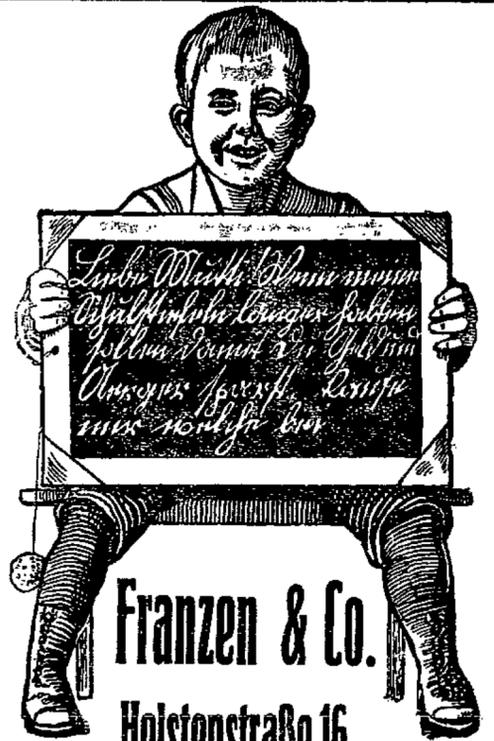 Liebe Mutti! Wenn meine
Schulstiefeln länger halten
sollen damit Du Geld und
Aerger sparst, kaufe
mir welche bei
Franzen & Co.
Holstenstraße 16